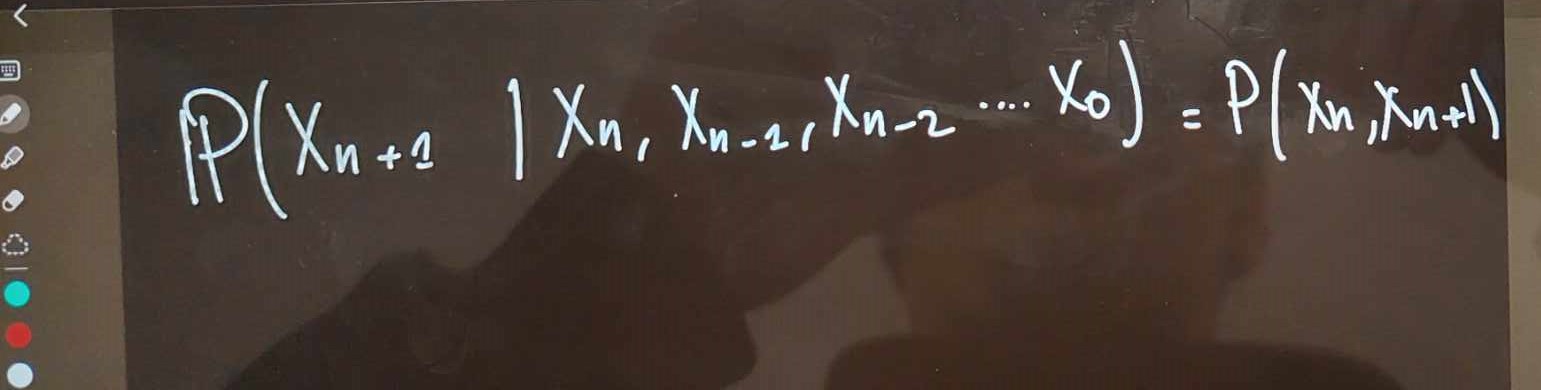 ℙ(Xn+1 | Xn, Xn-1, Xn-2 .... X0) = P(Xn, Xn+1)